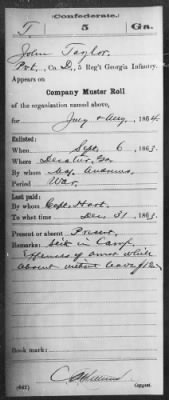 Confederate.
T. 5 Ga.
John Taylor
Pvt., Co. D, 5 Reg't Georgia Infantry.
Appears on
Company Muster Roll
of the organization named above,
for July & Aug, 1864.
Enlisted:
When Sept 6, 1863.
Where Decatur, Ga.
By whom Maj. Andrews
Period War
Last paid:
By whom Capt. Hart
To what time Dec. 31, 1863.
Present or absent Present.
Remarks: Sick in Camp.
absent without leave
Book mark:
(642) Copyist.